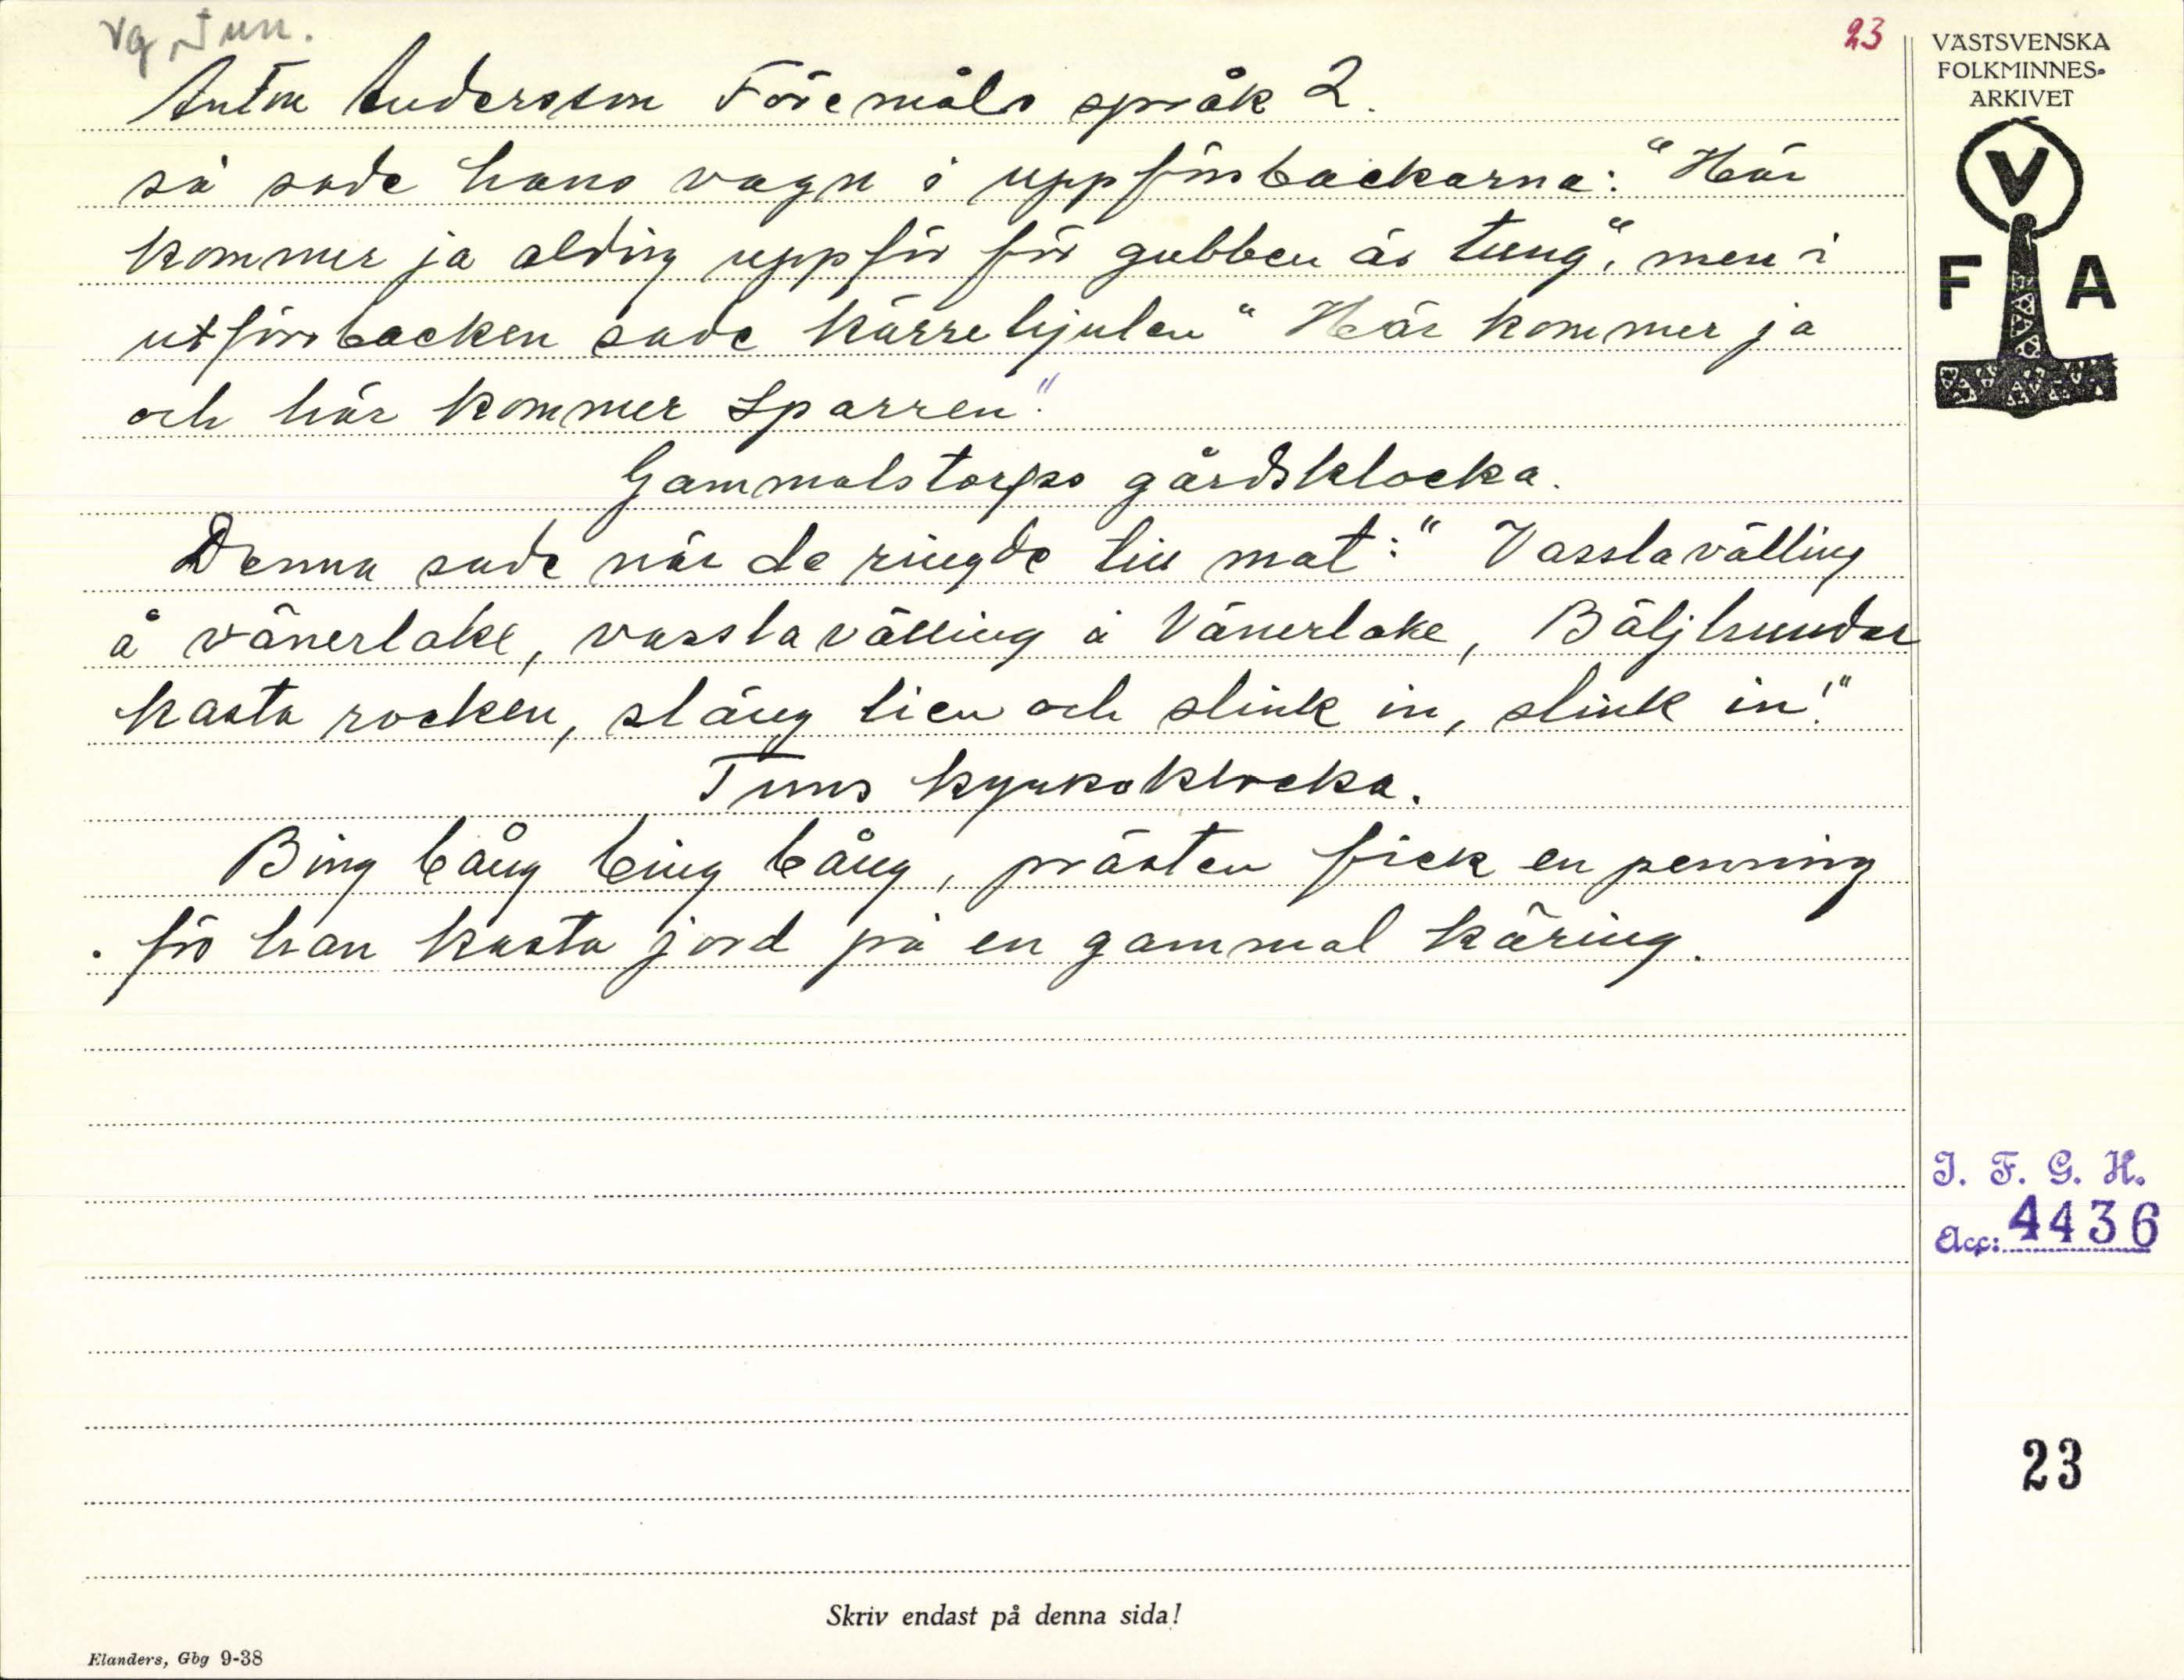 Vg, Tun.
23
Anton Andersson Föremåls språk 2.
så sade hans vagn i uppförsbackarna: "Här
kommer ja aldrig uppför för gubben är tung", men i
utförsbacken sade kärrehjulen " Här kommer ja
och här kommer Sparren".
Gammalstorps gårdsklocka.
Denna sade när de ringde till mat: " Vasslavälling
å vänerlake, vasslavälling å Vänerlake, Bäljhundar
kasta rocken, släng lien och slink in, slink in!"
Tuns kyrkoklocka.
Bing bång bing bång, prästen fick en penning
. för han kasta jord på en gammal käring.
VÄSTSVENSKA
FOLKMINNES-
ARKIVET
V
F A
I. F. G. H.
Acc: 4436
23
Skriv endast på denna sida!
Elanders, Gbg 9-38